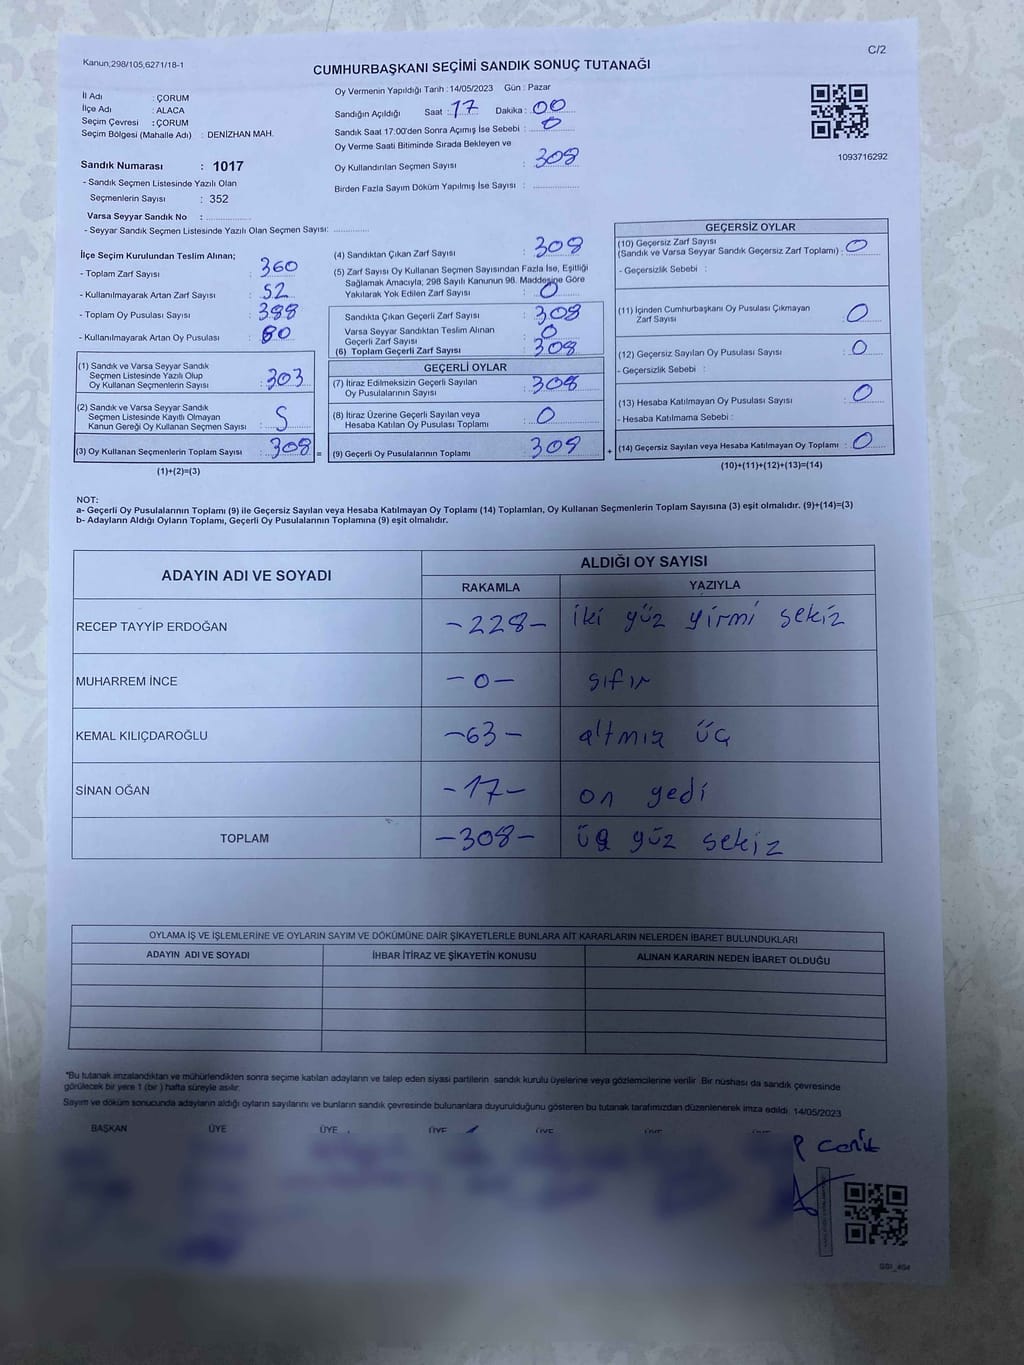 C/2
Kanun;298/105,6271/18-1
CUMHURBAŞKANI SEÇİMİ SANDIK SONUÇ TUTANAĞI
İl Adı : ÇORUM
İlçe Adı : ALACA
Seçim Çevresi : ÇORUM
Seçim Bölgesi (Mahalle Adı) : DENİZHAN MAH.
Sandık Numarası : 1017
- Sandık Seçmen Listesinde Yazılı Olan
Seçmenlerin Sayısı : 352
Varsa Seyyar Sandık No :
- Seyyar Sandık Seçmen Listesinde Yazılı Olan Seçmen Sayısı:
Oy Vermenin Yapıldığı Tarih : 14/05/2023 Gün : Pazar
Sandığın Açıldığı Saat : 17 Dakika : 00
Sandık Saat 17.00'den Sonra Açımış İse Sebebi : 0
Oy Verme Saati Bitiminde Sırada Bekleyen ve
Oy Kullandırılan Seçmen Sayısı : 308
Birden Fazla Sayım Döküm Yapılmış İse Sayısı :
1093716292
İlçe Seçim Kurulundan Teslim Alınan;
- Toplam Zarf Sayısı : 360
- Kullanılmayarak Artan Zarf Sayısı : 52
- Toplam Oy Pusulası Sayısı : 388
- Kullanılmayarak Artan Oy Pusulası : 80
(1) Sandık ve Varsa Seyyar Sandık
Seçmen Listesinde Yazılı Olup
Oy Kullanan Seçmenlerin Sayısı : 303
(2) Sandık ve Varsa Seyyar Sandık
Seçmen Listesinde Kayıtlı Olmayan
Kanun Gereği Oy Kullanan Seçmen Sayısı : 5
(3) Oy Kullanan Seçmenlerin Toplam Sayısı : 308 =
(1)+(2)=(3)
(4) Sandıktan Çıkan Zarf Sayısı : 308
(5) Zarf Sayısı Oy Kullanan Seçmen Sayısından Fazla İse, Eşitliği
Sağlamak Amacıyla, 298 Sayılı Kanunun 98. Maddesine Göre
Yakılarak Yok Edilen Zarf Sayısı : 0
Sandıkta Çıkan Geçerli Zarf Sayısı : 308
Varsa Seyyar Sandıktan Teslim Alınan
Geçerli Zarf Sayısı : 0
(6) Toplam Geçerli Zarf Sayısı : 308
GEÇERLİ OYLAR
(7) İtiraz Edilmeksizin Geçerli Sayılan
Oy Pusulalarının Sayısı : 308
(8) İtiraz Üzerine Geçerli Sayılan veya
Hesaba Katılan Oy Pusulası Toplamı : 0
(9) Geçerli Oy Pusulalarının Toplamı : 308 +
GEÇERSİZ OYLAR
(10) Geçersiz Zarf Sayısı
(Sandık ve Varsa Seyyar Sandık Geçersiz Zarf Toplamı) : 0
- Geçersizlik Sebebi :
(11) İçinden Cumhurbaşkanı Oy Pusulası Çıkmayan
Zarf Sayısı : 0
(12) Geçersiz Sayılan Oy Pusulası Sayısı : 0
- Geçersizlik Sebebi :
(13) Hesaba Katılmayan Oy Pusulası Sayısı : 0
- Hesaba Katılmama Sebebi :
(14) Geçersiz Sayılan veya Hesaba Katılmayan Oy Toplamı : 0
(10)+(11)+(12)+(13)=(14)
NOT:
a- Geçerli Oy Pusulalarının Toplamı (9) ile Geçersiz Sayılan veya Hesaba Katılmayan Oy Toplamı (14) Toplamları, Oy Kullanan Seçmenlerin Toplam Sayısına (3) eşit olmalıdır. (9)+(14)=(3)
b- Adayların Aldığı Oyların Toplamı, Geçerli Oy Pusulalarının Toplamına (9) eşit olmalıdır.
ADAYIN ADI VE SOYADI
ALDIĞI OY SAYISI
RAKAMLA YAZIYLA
RECEP TAYYİP ERDOĞAN -228- iki yüz yirmi sekiz
MUHARREM İNCE -0- sıfır
KEMAL KILIÇDAROĞLU -63- altmış üç
SİNAN OĞAN -17- on yedi
TOPLAM -308- üç yüz sekiz
OYLAMA İŞ VE İŞLEMLERİNE VE OYLARIN SAYIM VE DÖKÜMÜNE DAİR ŞİKAYETLERLE BUNLARA AİT KARARLARIN NELERDEN İBARET BULUNDUKLARI
ADAYIN ADI VE SOYADI İHBAR İTİRAZ VE ŞİKAYETİN KONUSU ALINAN KARARIN NEDEN İBARET OLDUĞU
*Bu tutanak imzalandıktan ve mühürlendikten sonra seçime katılan adayların ve talep eden siyasi partilerin sandık kurulu üyelerine veya gözlemcilerine verilir. Bir nüshası da sandık çevresinde
görülecek bir yere 1 (bir ) hafta süreyle asılır.
Sayım ve döküm sonucunda adayların aldığı oyların sayılarını ve bunların sandık çevresinde bulunanlara duyurulduğunu gösteren bu tutanak tarafımızdan düzenlenerek imza edildi. 14/05/2023
BAŞKAN ÜYE ÜYE ÜYE ÜYE ÜYE